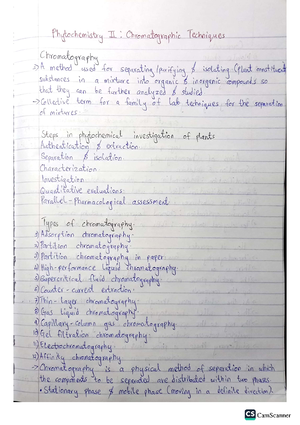 Phytochemistry II : Chromatographic Techniques
Chromatography
→ A method used for separating/purifying & isolating (plant constituent
substances in a mixture into organic & inorganic compounds so
that they can be further analyzed & studied
→ Collective term for a family of lab techniques for the separation
of mixtures
Steps in phytochemical investigation of plants
Authentication & extraction
Separation & isolation
Characterization
Investigation
Quantitative evaluations
Parallel-Pharmacological assessment
Types of chromatography
1) Adsorption chromatography
2) Partition chromatography
3) Partition chromatography in paper
4) High-performance liquid chromatography
5) Supercritical fluid chromatography
6) Counter-current extraction
7) Thin-layer chromatography
8) Gas liquid chromatography
9) Capillary-column gas chromatography
10) Gel filtration chromatography
11) Electrochromatography
12) Affinity chromatography
→ Chromatography is a physical method of separation in which
the components to be separated are distributed within two phases
• Stationary phase & mobile phase (moving in a definite direction)
CS CamScanner